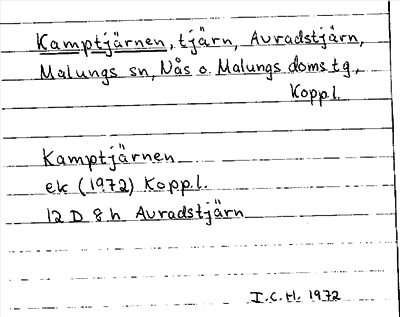 Kamptjärnen, tjärn, Avradstjärn,
Malungs sn, Nås o. Malungs doms.tg.,
Koppl.
Kamptjärnen
ek (1972) Koppl.
12 D 8 h Avradstjärn
I.C.H. 1972